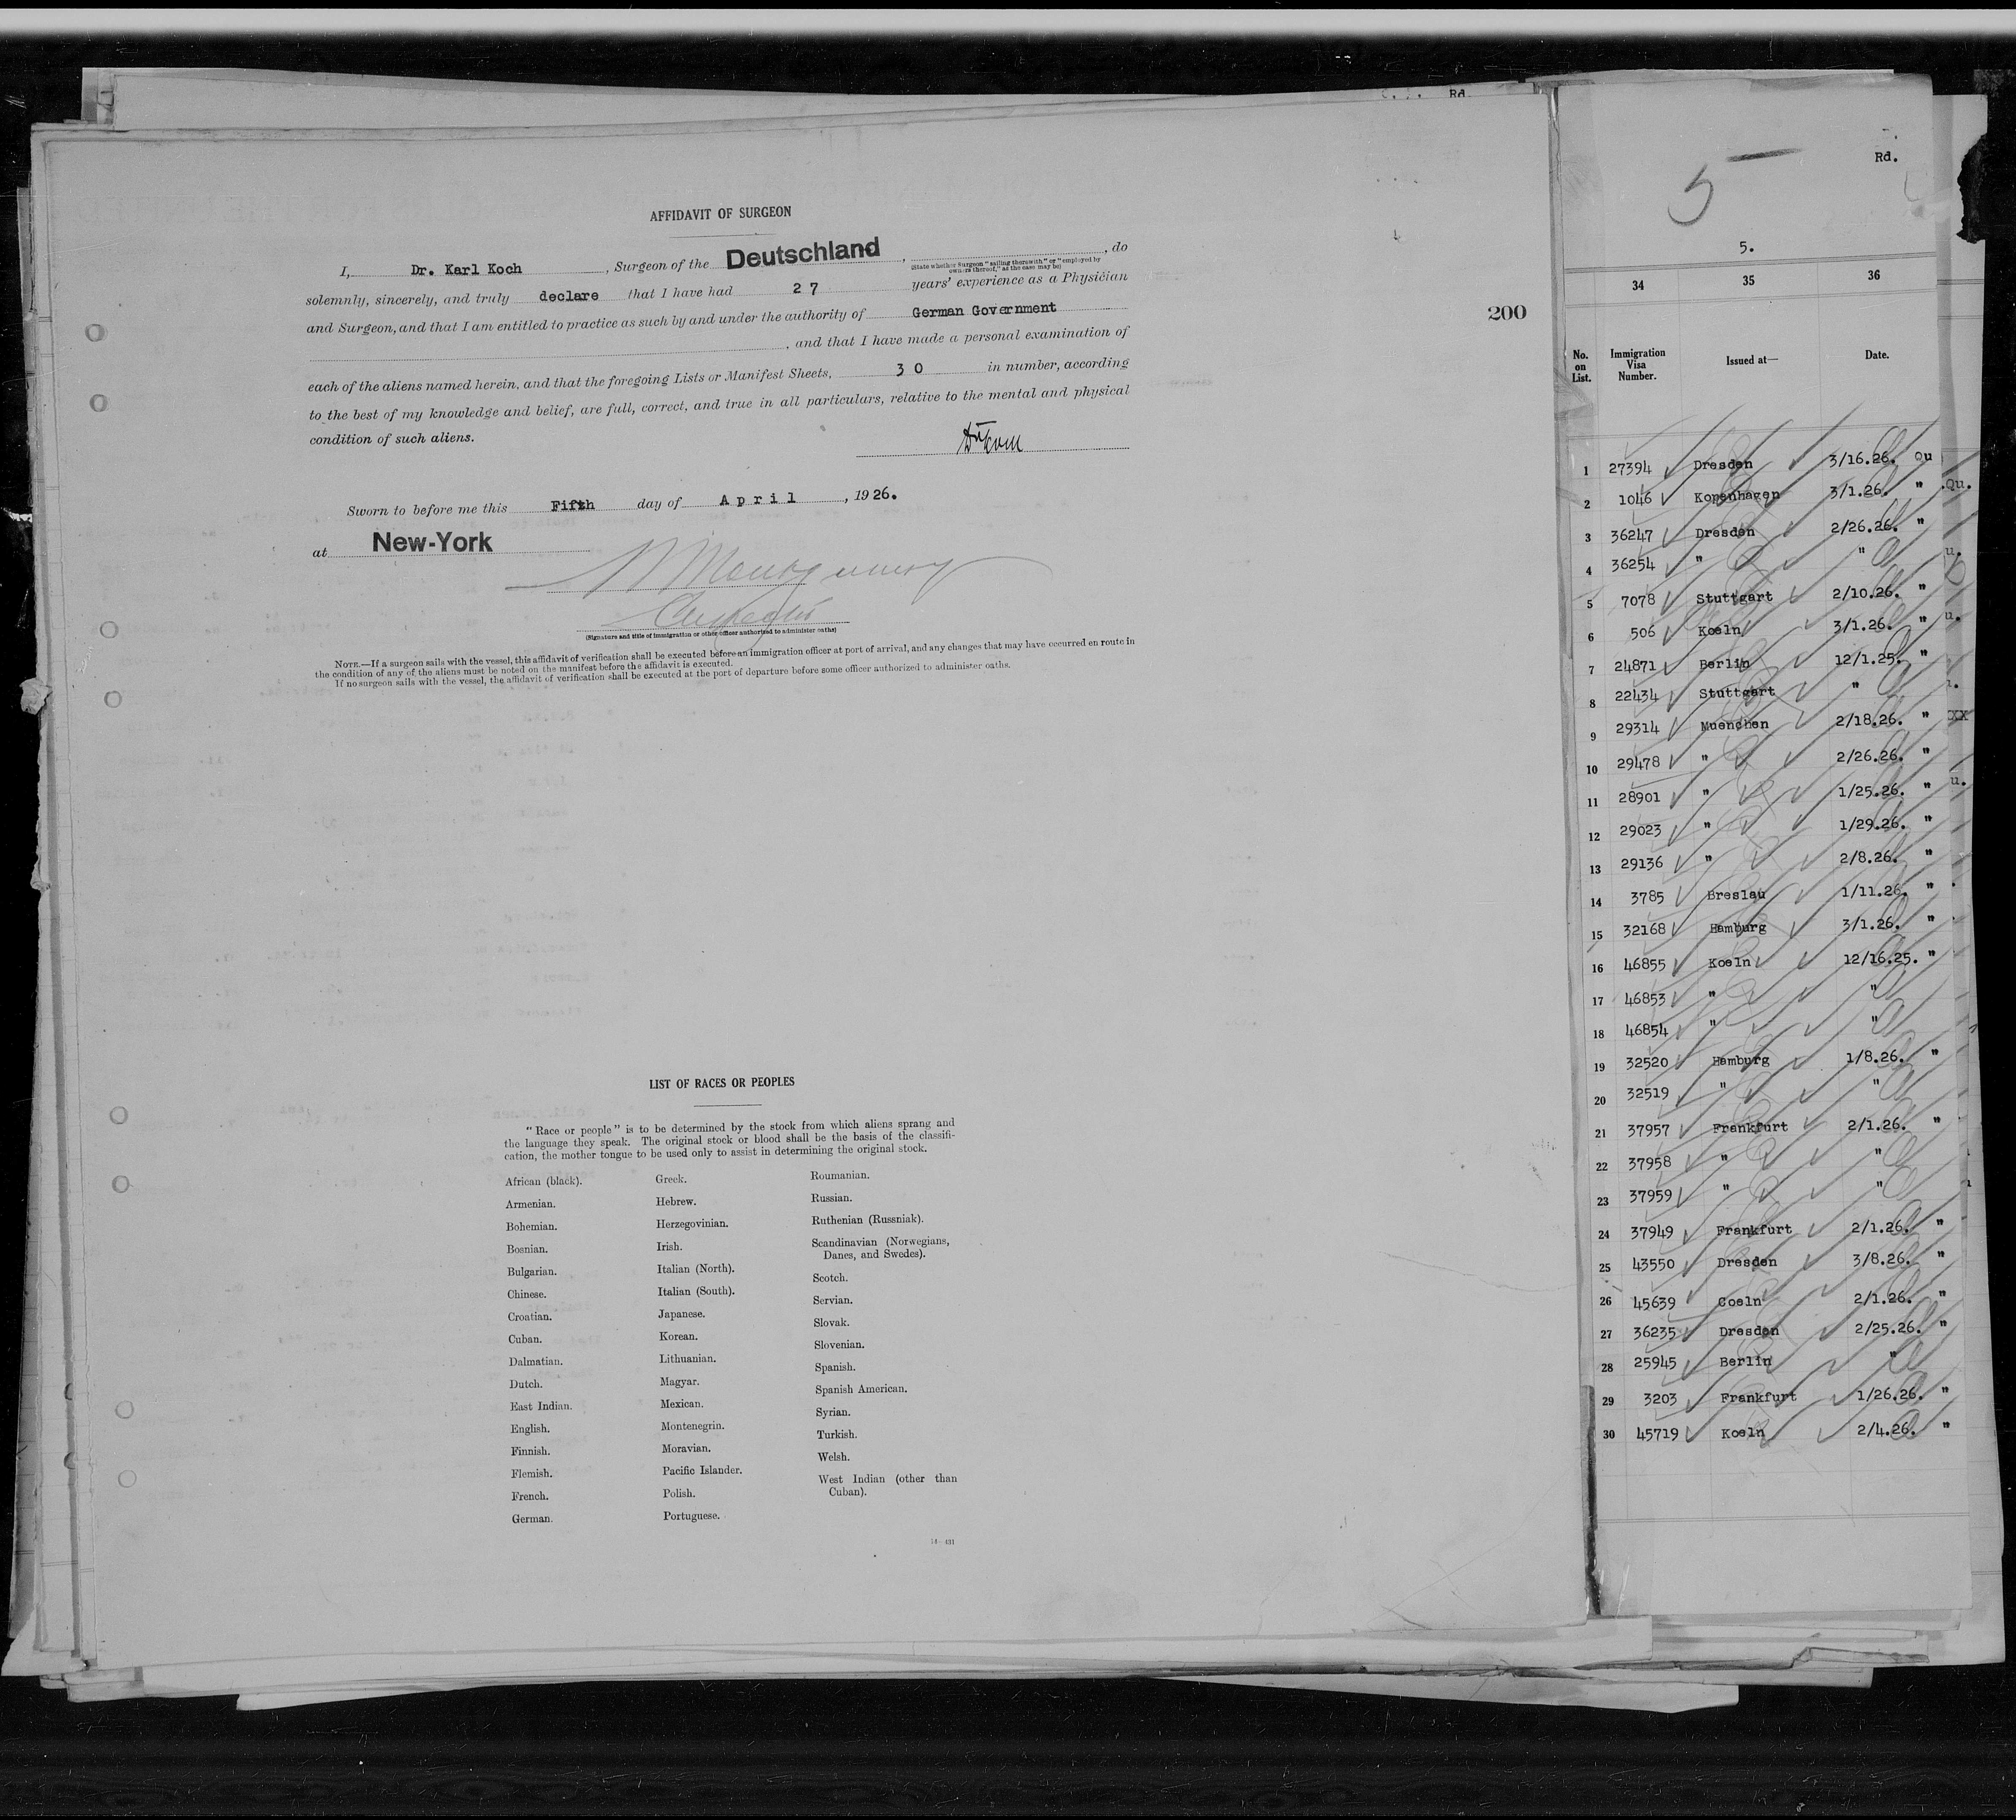 Rd.
AFFIDAVIT OF SURGEON
I, Dr. Karl Koch, Surgeon of the Deutschland, , do
(State whether Surgeon "sailing therewith" or "employed by
owners thereof," as the case may be)
solemnly, sincerely, and truly declare that I have had 27 years' experience as a Physician
and Surgeon, and that I am entitled to practice as such by and under the authority of German Government
, and that I have made a personal examination of
each of the aliens named herein, and that the foregoing Lists or Manifest Sheets, 30 in number, according
to the best of my knowledge and belief, are full, correct, and true in all particulars, relative to the mental and physical
condition of such aliens.
Sworn to before me this Fifth day of April, 1926.
at New-York
(Signature and title of immigration or other officer authorized to administer oaths)
NOTE.—If a surgeon sails with the vessel, this affidavit of verification shall be executed before an immigration officer at port of arrival, and any changes that may have occurred en route in
the condition of any of the aliens must be noted on the manifest before the affidavit is executed.
If no surgeon sails with the vessel, the affidavit of verification shall be executed at the port of departure before some officer authorized to administer oaths.
200
LIST OF RACES OR PEOPLES
"Race or people" is to be determined by the stock from which aliens sprang and
the language they speak. The original stock or blood shall be the basis of the classifi-
cation, the mother tongue to be used only to assist in determining the original stock.
African (black).
Armenian.
Bohemian.
Bosnian.
Bulgarian.
Chinese.
Croatian.
Cuban.
Dalmatian.
Dutch.
East Indian.
English.
Finnish.
Flemish.
French.
German.
Greek.
Hebrew.
Herzegovinian.
Irish.
Italian (North).
Italian (South).
Japanese.
Korean.
Lithuanian.
Magyar.
Mexican.
Montenegrin.
Moravian.
Pacific Islander.
Polish.
Portuguese.
Roumanian.
Russian.
Ruthenian (Russniak).
Scandinavian (Norwegians,
Danes, and Swedes).
Scotch.
Servian.
Slovak.
Slovenian.
Spanish.
Spanish American.
Syrian.
Turkish.
Welsh.
West Indian (other than
Cuban).
14-431
5
Rd.
5.
34 35 36
No. on List. Immigration Visa Number. Issued at— Date.
1 27394 Dresden 3/16.26. Qu
2 1046 Kopenhagen 3/1.26. " .Qu.
3 36247 Dresden 2/26.26. "
4 36254 " " u.
5 7078 Stuttgart 2/10.26. "
6 506 Koeln 3/1.26. " u.
7 24871 Berlin 12/1.25. "
8 22434 Stuttgart "
9 29314 Muenchen 2/18.26. " XX
10 29478 " 2/26.26. "
11 28901 " 1/25.26. " u.
12 29023 " 1/29.26. "
13 29136 " 2/8.26. "
14 3785 Breslau 1/11.26. "
15 32168 Hamburg 3/1.26. "
16 46855 Koeln 12/16.25. "
17 46853 " "
18 46854 " "
19 32520 Hamburg 1/8.26. "
20 32519 " "
21 37957 Frankfurt 2/1.26. "
22 37958 " "
23 37959 " "
24 37949 Frankfurt 2/1.26. "
25 43550 Dresden 3/8.26. "
26 45639 Coeln 2/1.26. "
27 36235 Dresden 2/25.26. "
28 25945 Berlin "
29 3203 Frankfurt 1/26.26. "
30 45719 Koeln 2/4.26. "